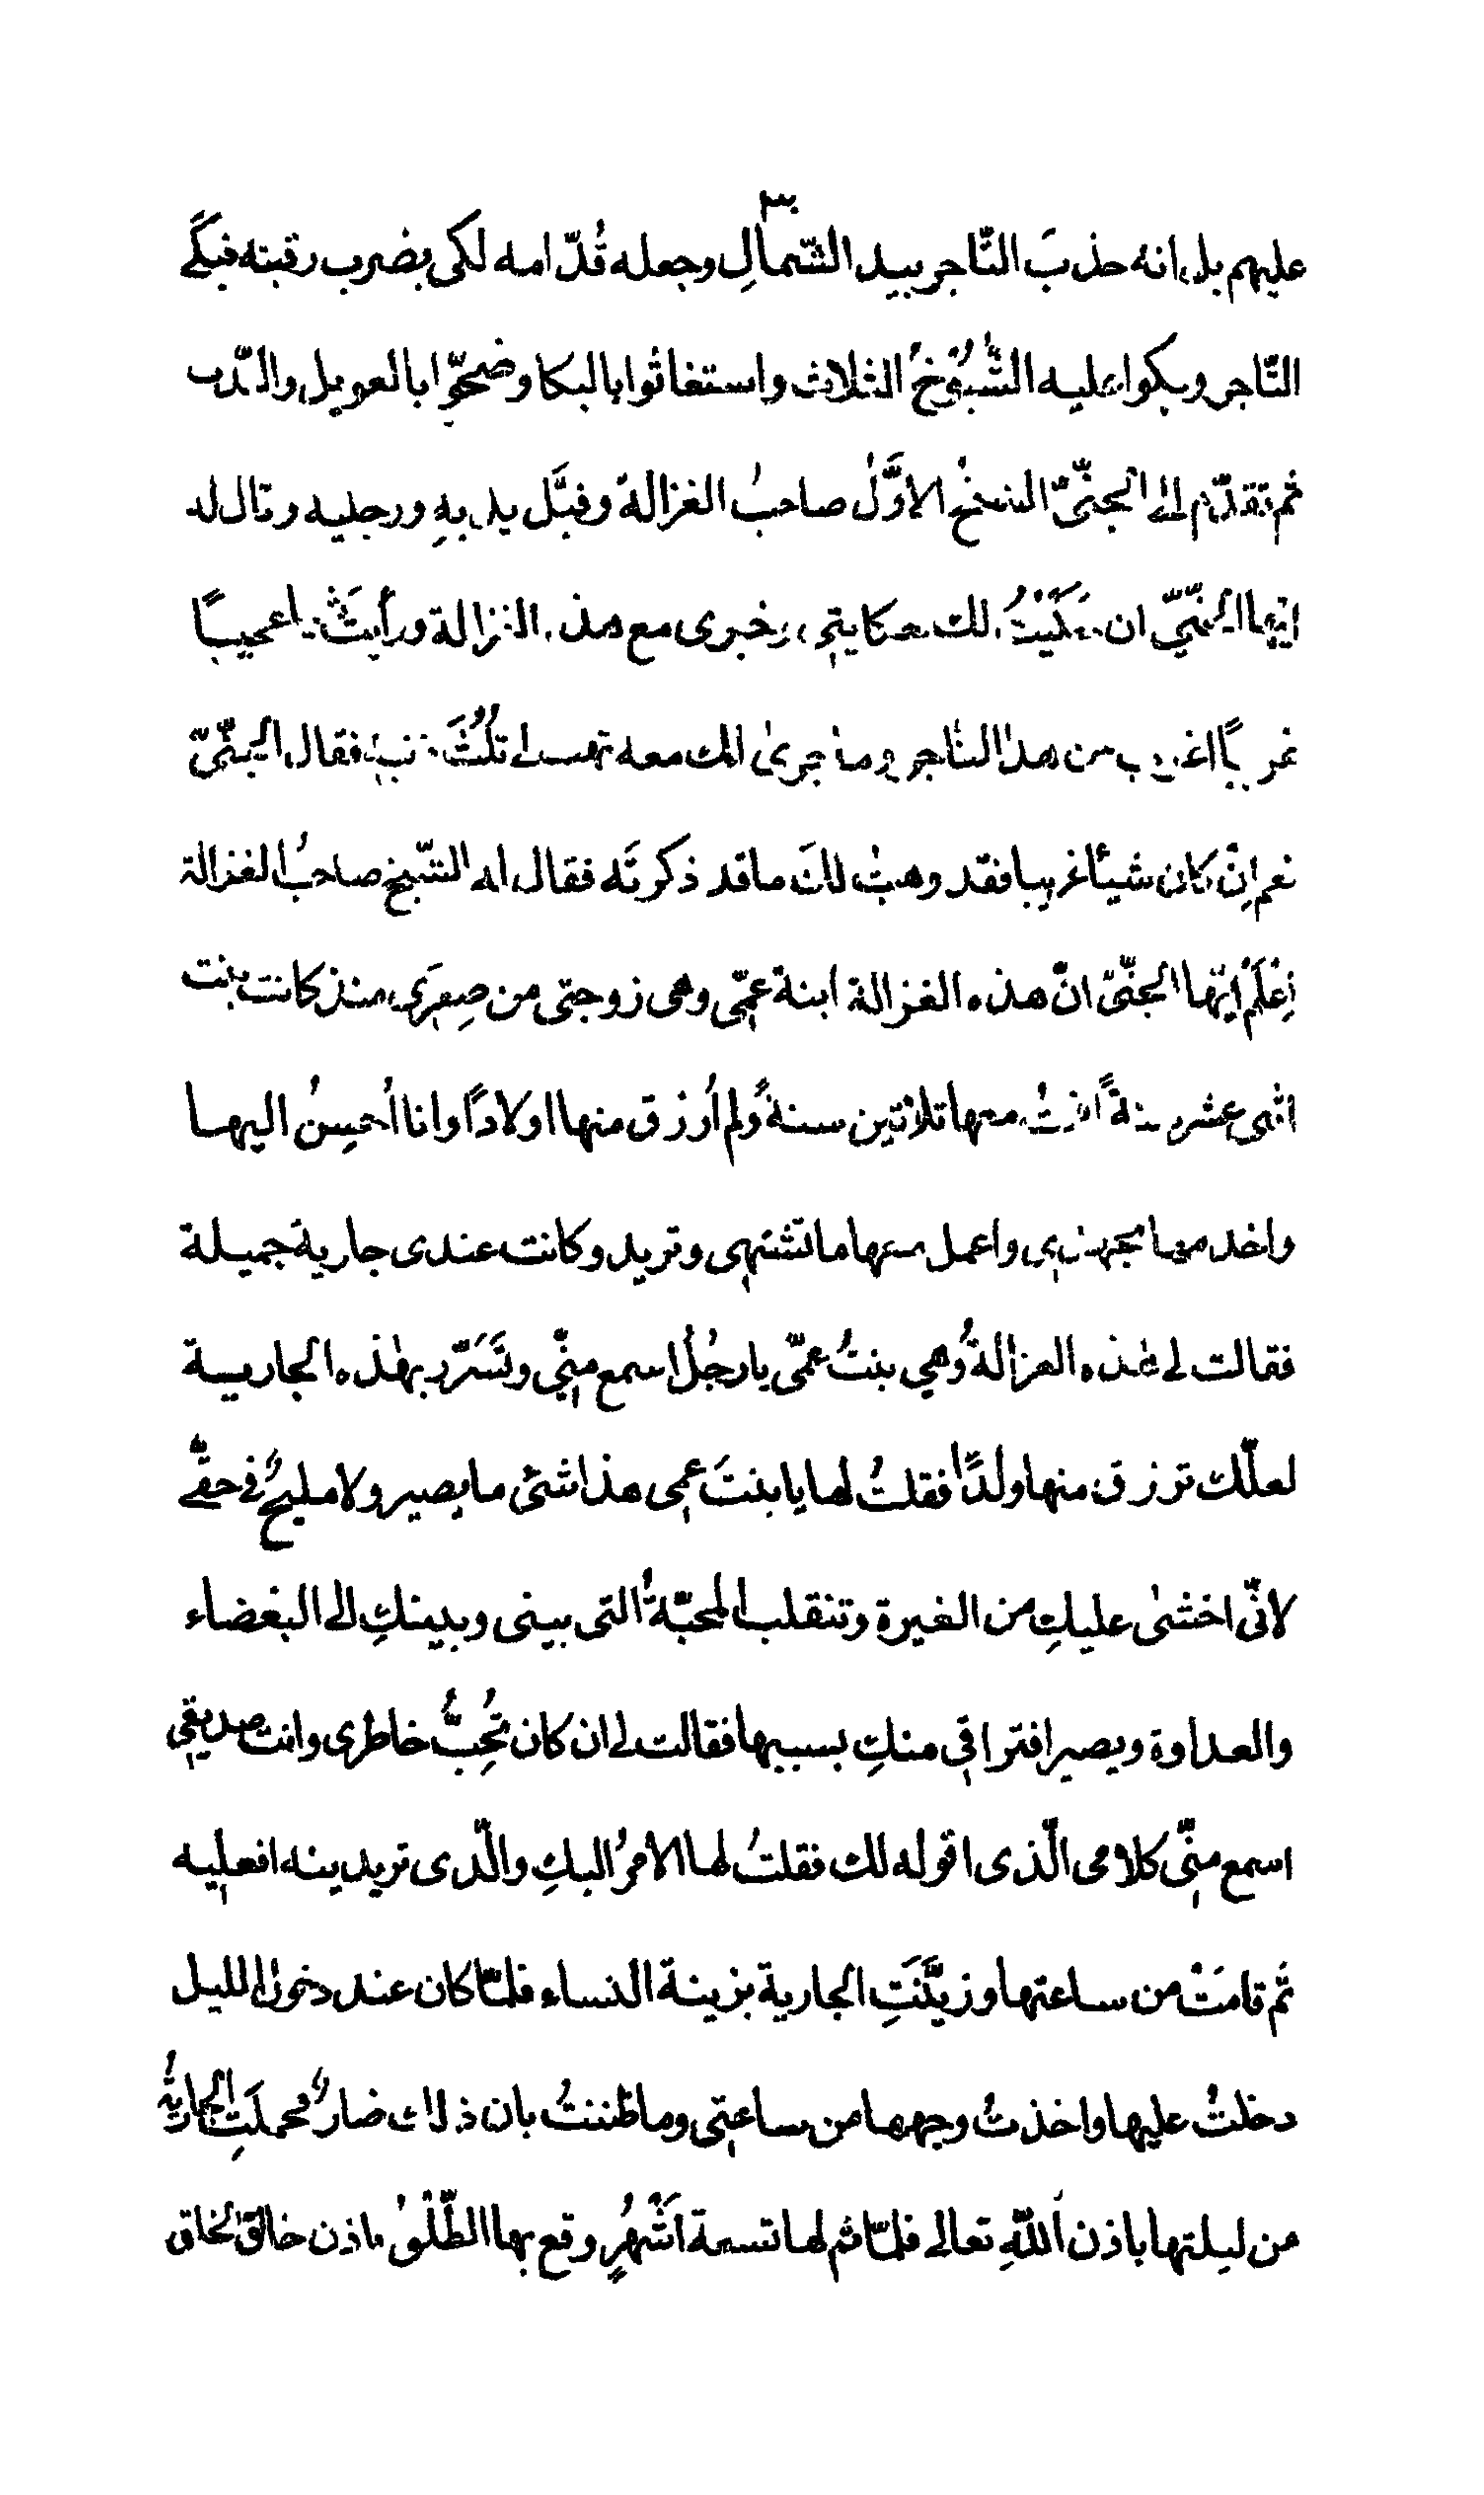 ٣٠
عليهم بل انه جذبَ التّاجر بيد الشّمالِ وجعله قُدّامه لكى يضرب رقبته فبكَى
التّاجر وبكوا عليه الشُّيُوْخُ الثلاث واستغاثوا بالبكا وضجّوا بالعويل والنّدب
ثم تقدّم الى الجنّىّ الشيخُ الاوَّلُ صاحبُ الغزالة وقبَّل يديهِ ورجليه وقال له
ايّها الجنّيّ ان حَكَيْتُ لك حكايتي وخبرى مع هذه الغزالة ورأيتَها عجيبًا
غريبًا اغرب من هذا التّاجر وما جرىٰ لك معه تهب لى ثُلُثَ ذنبه فقال الجنّىّ
نعم اِنْ كان شيأ غريبا فقد وهبتُ لكَ ما قد ذكرتَه فقال له الشّيخ صاحبُ الغزالة
اِعْلَمْ ايّها الجنّىّ انّ هذه الغزالة ابنة عمّي وهى زوجتى من صِغرَي منذ كانت بنت
اثنى عشر سنةً اقمتُ معها ثلاثين سنةً ولم أرزق منها اولادًا وانا اُحسِنُ اليها
واخدمها بجهدي واعمل معها ما تشتهي وتريد وكانت عندى جارية جميلة
فقالت لى هٰذه الغزالةُ وهي بنتُ عمّى يا رجُلُ اسمع منّي وتَسَرَّر بهٰذه الجاريـة
لعلّك ترزق منها ولدًا فقلتُ لها يا بنتَ عمي هذا شئى ما يصير ولا مليحٌ فى حقّى
لانّى اخشىٰ عليكِ من الغيرة وتنقلب المحبّةُ التى بينى وبينكِ الى البغضاء
والعداوة ويصير افتراقي منكِ بسببها فقالت لى ان كان تُحِبُّ خاطرى وانت صديقي
اسمع منّي كلامى الّذى اقوله لك فقلتُ لها الامرُ اليكِ والّذى تريدينه افعليه
ثم قامَتْ من ساعتها وزيَّنَتِ الجارية بزينة النساء فلمّا كان عند دخول الليل
دخلتُ عليها واخذتُ وجهها من ساعتي وما ظننتُ بان ذلك ضارٌ فحملَتِ الجاريةُ
من ليلتها باذن اَللّٰهِ تعالى فلمّا تم لها تسعة اَشْهُرٍ وقع بها الطَّلْقُ باذن خالق الخلق